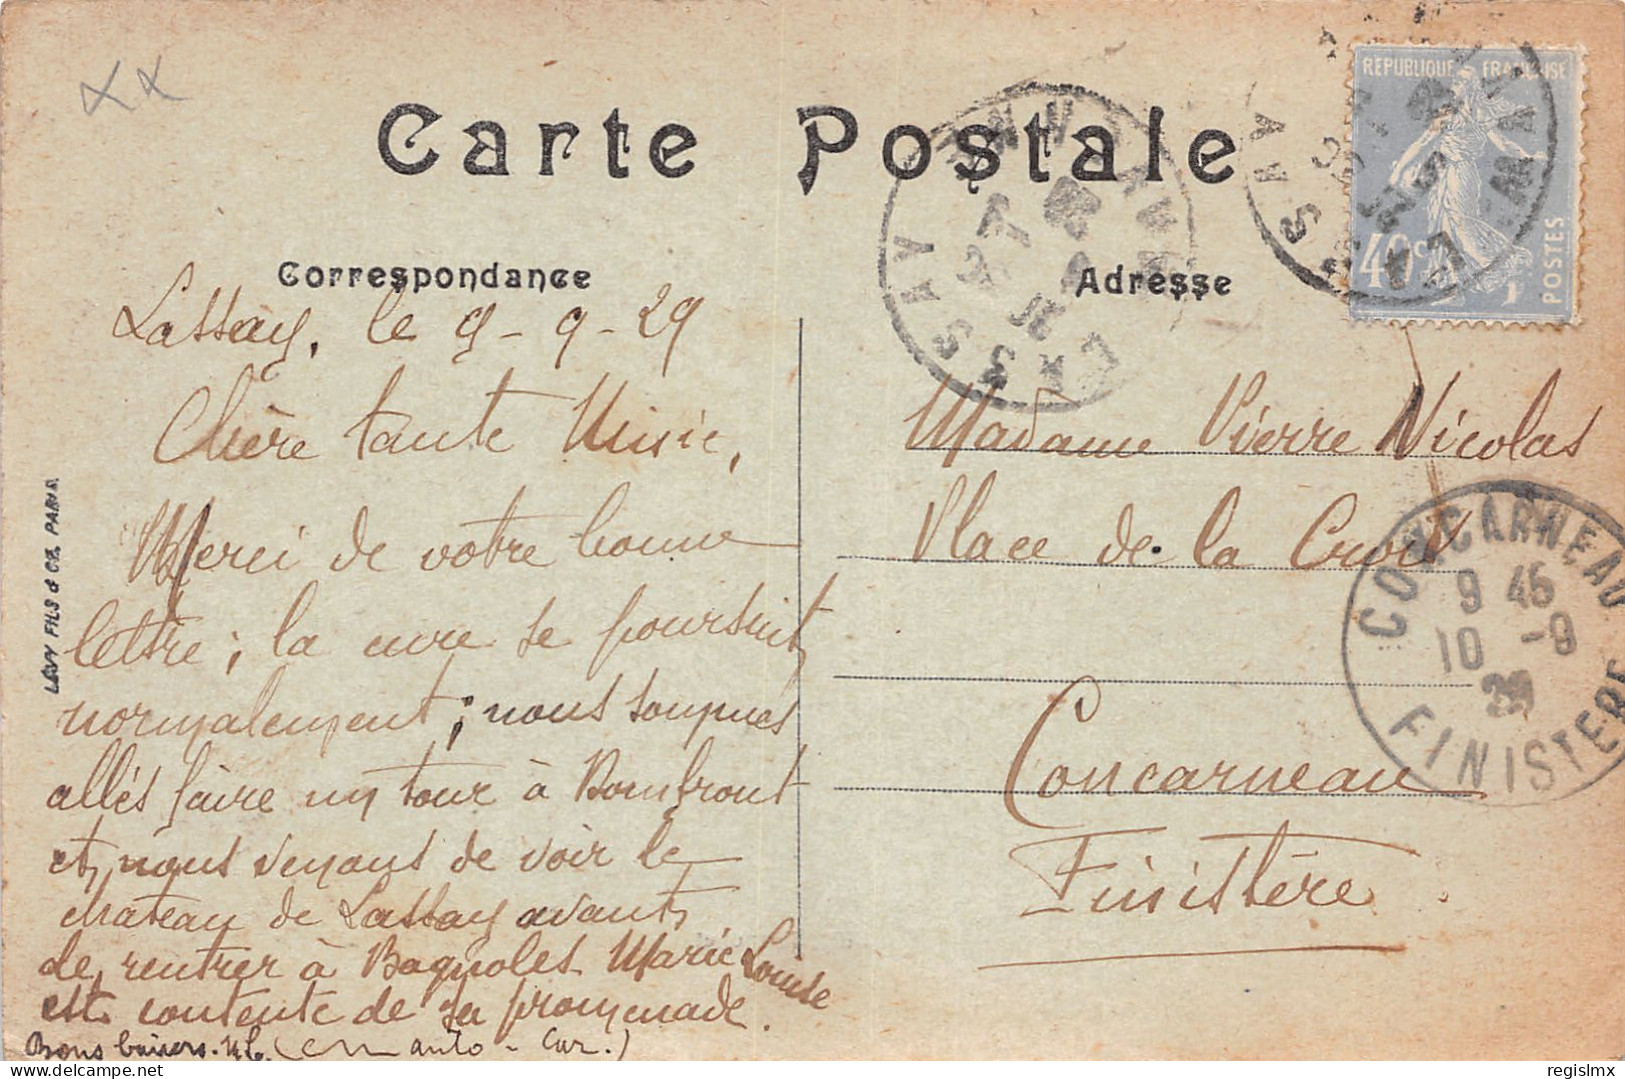 Carte Postale
Correspondance
Adresse
REPUBLIQUE FRANÇAISE
40c
POSTES
LASSAY
Lassay, le 9-9-29
Chère tante
Merci de votre bonne
lettre; la cure se poursuit
normalement; nous sommes
allés faire un tour à Domfront
et nous venons de voir le
château de Lassay avant
de rentrer à Bagnoles. Marie Louise
est contente de sa promenade.
Bons baisers. (en auto-car.)
Madame Pierre Nicolas
Place de la Croix
Concarneau
Finistère
CONCARNEAU
9 45
10 -9
29
FINISTERE
LÉVY FILS & CIE. PARIS
regislmx
delcampe.net